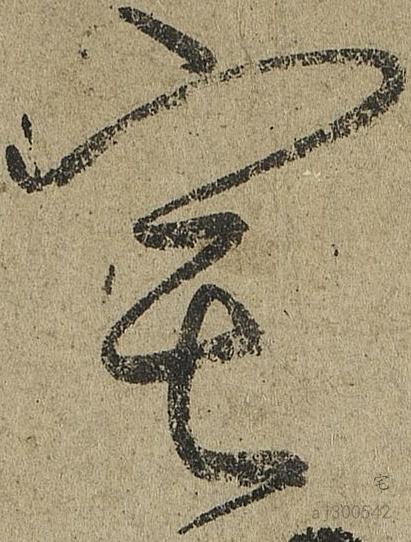 宅
宅
a1300542